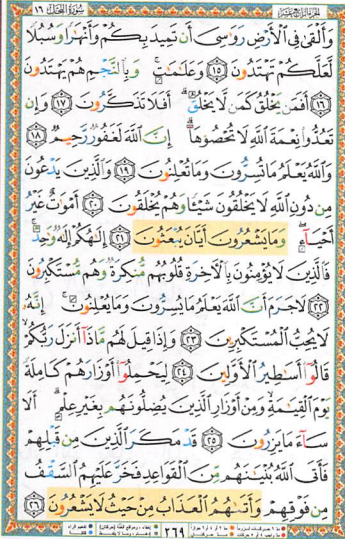 الجزء الرابع عشر سورة النحل ١٦
وَأَلْقَىٰ فِي الْأَرْضِ رَوَاسِيَ أَن تَمِيدَ بِكُمْ وَأَنْهَارًا وَسُبُلًا
لَّعَلَّكُمْ تَهْتَدُونَ ١٥ وَعَلَامَاتٍ ۚ وَبِالنَّجْمِ هُمْ يَهْتَدُونَ
١٦ أَفَمَن يَخْلُقُ كَمَن لَّا يَخْلُقُ ۗ أَفَلَا تَذَكَّرُونَ ١٧ وَإِن
تَعُدُّوا نِعْمَةَ اللَّهِ لَا تُحْصُوهَا ۗ إِنَّ اللَّهَ لَغَفُورٌ رَّحِيمٌ ١٨
وَاللَّهُ يَعْلَمُ مَا تُسِرُّونَ وَمَا تُعْلِنُونَ ١٩ وَالَّذِينَ يَدْعُونَ
مِن دُونِ اللَّهِ لَا يَخْلُقُونَ شَيْئًا وَهُمْ يُخْلَقُونَ ٢٠ أَمْوَاتٌ غَيْرُ
أَحْيَاءٍ ۖ وَمَا يَشْعُرُونَ أَيَّانَ يُبْعَثُونَ ٢١ إِلَٰهُكُمْ إِلَٰهٌ وَاحِدٌ ۚ
فَالَّذِينَ لَا يُؤْمِنُونَ بِالْآخِرَةِ قُلُوبُهُم مُّنكِرَةٌ وَهُم مُّسْتَكْبِرُونَ
٢٢ لَا جَرَمَ أَنَّ اللَّهَ يَعْلَمُ مَا يُسِرُّونَ وَمَا يُعْلِنُونَ ۚ إِنَّهُ
لَا يُحِبُّ الْمُسْتَكْبِرِينَ ٢٣ وَإِذَا قِيلَ لَهُم مَّاذَا أَنزَلَ رَبُّكُمْ ۙ
قَالُوا أَسَاطِيرُ الْأَوَّلِينَ ٢٤ لِيَحْمِلُوا أَوْزَارَهُمْ كَامِلَةً
يَوْمَ الْقِيَامَةِ ۙ وَمِنْ أَوْزَارِ الَّذِينَ يُضِلُّونَهُم بِغَيْرِ عِلْمٍ ۗ أَلَا
سَاءَ مَا يَزِرُونَ ٢٥ قَدْ مَكَرَ الَّذِينَ مِن قَبْلِهِمْ
فَأَتَى اللَّهُ بُنْيَانَهُم مِّنَ الْقَوَاعِدِ فَخَرَّ عَلَيْهِمُ السَّقْفُ
مِن فَوْقِهِمْ وَأَتَاهُمُ الْعَذَابُ مِنْ حَيْثُ لَا يَشْعُرُونَ ٢٦
٢٦٩